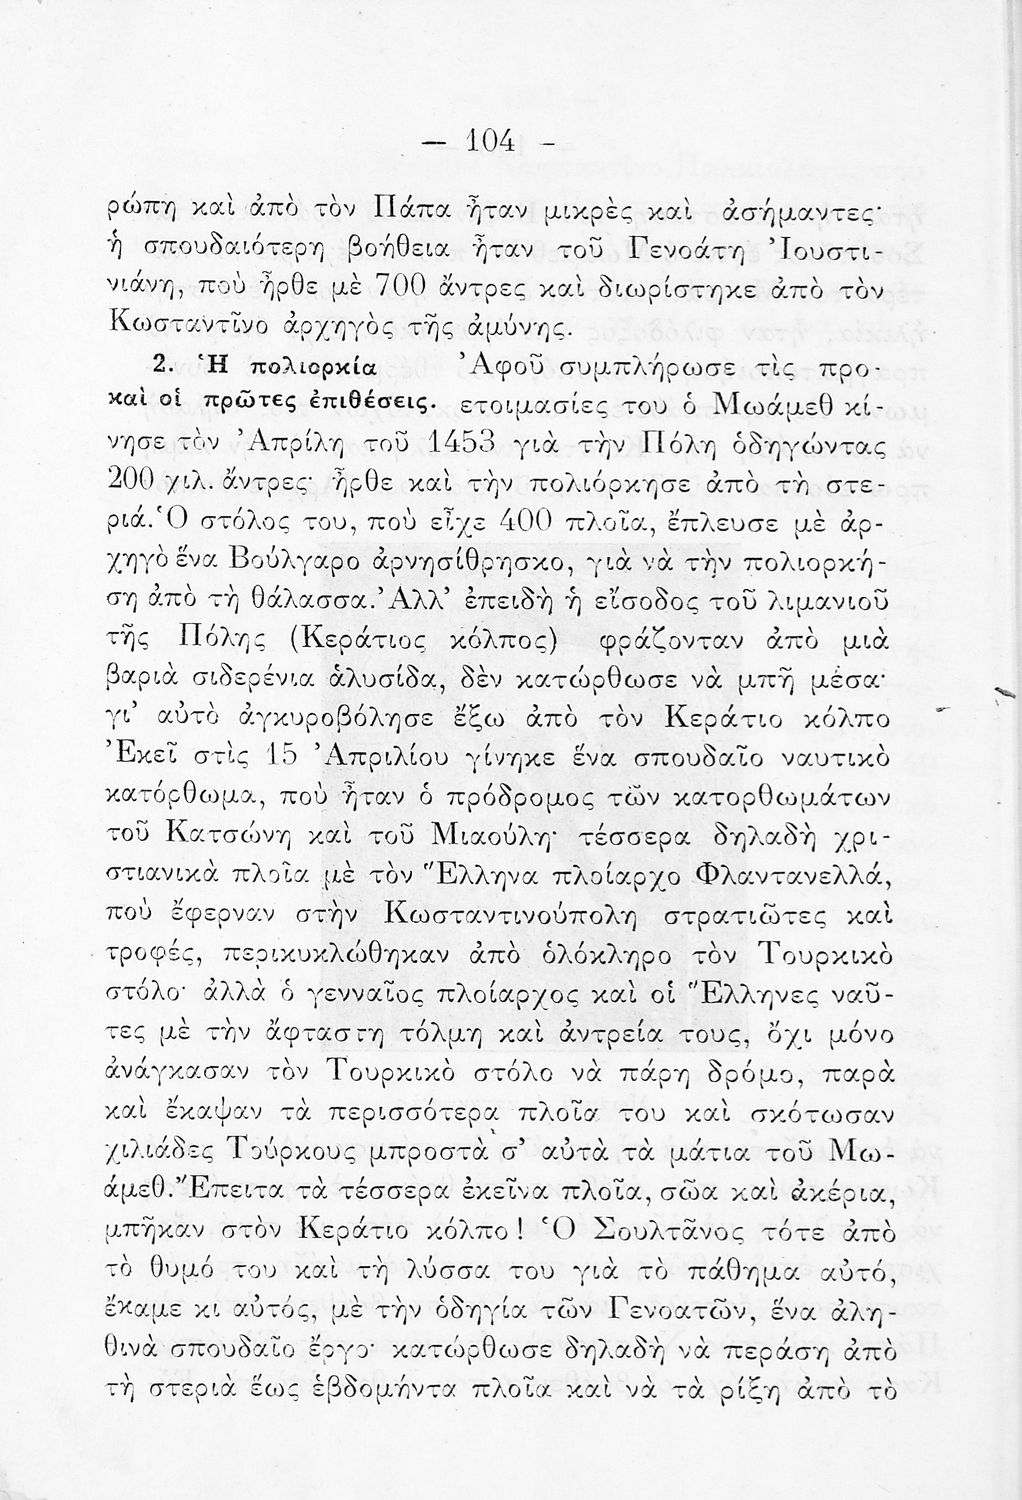 — 104 -
ρώπη καὶ ἀπὸ τὸν Πάπα ἦταν μικρὲς καὶ ἀσήμαντες·
ἡ σπουδαιότερη βοήθεια ἦταν τοῦ Γενοάτη Ἰουστι-
νιάνη, ποὺ ἦρθε μὲ 700 ἄντρες καὶ διωρίστηκε ἀπὸ τὸν
Κωσταντῖνο ἀρχηγὸς τῆς ἀμύνης.
2. Ἡ πολιορκία Ἀφοῦ συμπλήρωσε τὶς προ-
καὶ οἱ πρῶτες ἐπιθέσεις. ετοιμασίες του ὁ Μωάμεθ κί-
νησε τὸν Ἀπρίλη τοῦ 1453 γιὰ τὴν Πόλη ὁδηγώντας
200 χιλ. ἄντρες· ἦρθε καὶ τὴν πολιόρκησε ἀπὸ τὴ στε-
ριά. Ὁ στόλος του, ποὺ εἶχε 400 πλοῖα, ἔπλευσε μὲ ἀρ-
χηγὸ ἕνα Βούλγαρο ἀρνησίθρησκο, γιὰ νὰ τὴν πολιορκή-
ση ἀπὸ τὴ θάλασσα. Ἀλλ’ ἐπειδὴ ἡ εἴσοδος τοῦ λιμανιοῦ
τῆς Πόλης (Κεράτιος κόλπος) φράζονταν ἀπὸ μιὰ
βαριὰ σιδερένια ἁλυσίδα, δὲν κατώρθωσε νὰ μπῆ μέσα·
γι’ αὐτὸ ἀγκυροβόλησε ἔξω ἀπὸ τὸν Κεράτιο κόλπο
Ἐκεῖ στὶς 15 Ἀπριλίου γίνηκε ἕνα σπουδαῖο ναυτικὸ
κατόρθωμα, ποὺ ἦταν ὁ πρόδρομος τῶν κατορθωμάτων
τοῦ Κατσώνη καὶ τοῦ Μιαούλη· τέσσερα δηλαδὴ χρι-
στιανικὰ πλοῖα μὲ τὸν Ἕλληνα πλοίαρχο Φλαντανελλά,
ποὺ ἔφερναν στὴν Κωσταντινούπολη στρατιῶτες καὶ
τροφές, περικυκλώθηκαν ἀπὸ ὁλόκληρο τὸν Τουρκικὸ
στόλο· ἀλλὰ ὁ γενναῖος πλοίαρχος καὶ οἱ Ἕλληνες ναῦ-
τες μὲ τὴν ἄφταστη τόλμη καὶ ἀντρεία τους, ὄχι μόνο
ἀνάγκασαν τὸν Τουρκικὸ στόλο νὰ πάρη δρόμο, παρὰ
καὶ ἔκαψαν τὰ περισσότερα πλοῖα του καὶ σκότωσαν
χιλιάδες Τούρκους μπροστὰ σ’ αὐτὰ τὰ μάτια τοῦ Μω-
άμεθ. Ἔπειτα τὰ τέσσερα ἐκεῖνα πλοῖα, σῶα καὶ ἀκέρια,
μπῆκαν στὸν Κεράτιο κόλπο! Ὁ Σουλτᾶνος τότε ἀπὸ
τὸ θυμό του καὶ τὴ λύσσα του γιὰ τὸ πάθημα αὐτό,
ἔκαμε κι αὐτός, μὲ τὴν ὁδηγία τῶν Γενοατῶν, ἕνα ἀλη-
θινὰ σπουδαῖο ἔργο· κατώρθωσε δηλαδὴ νὰ περάση ἀπὸ
τὴ στεριὰ ἕως ἑβδομήντα πλοῖα καὶ νὰ τὰ ρίξη ἀπὸ τὸ